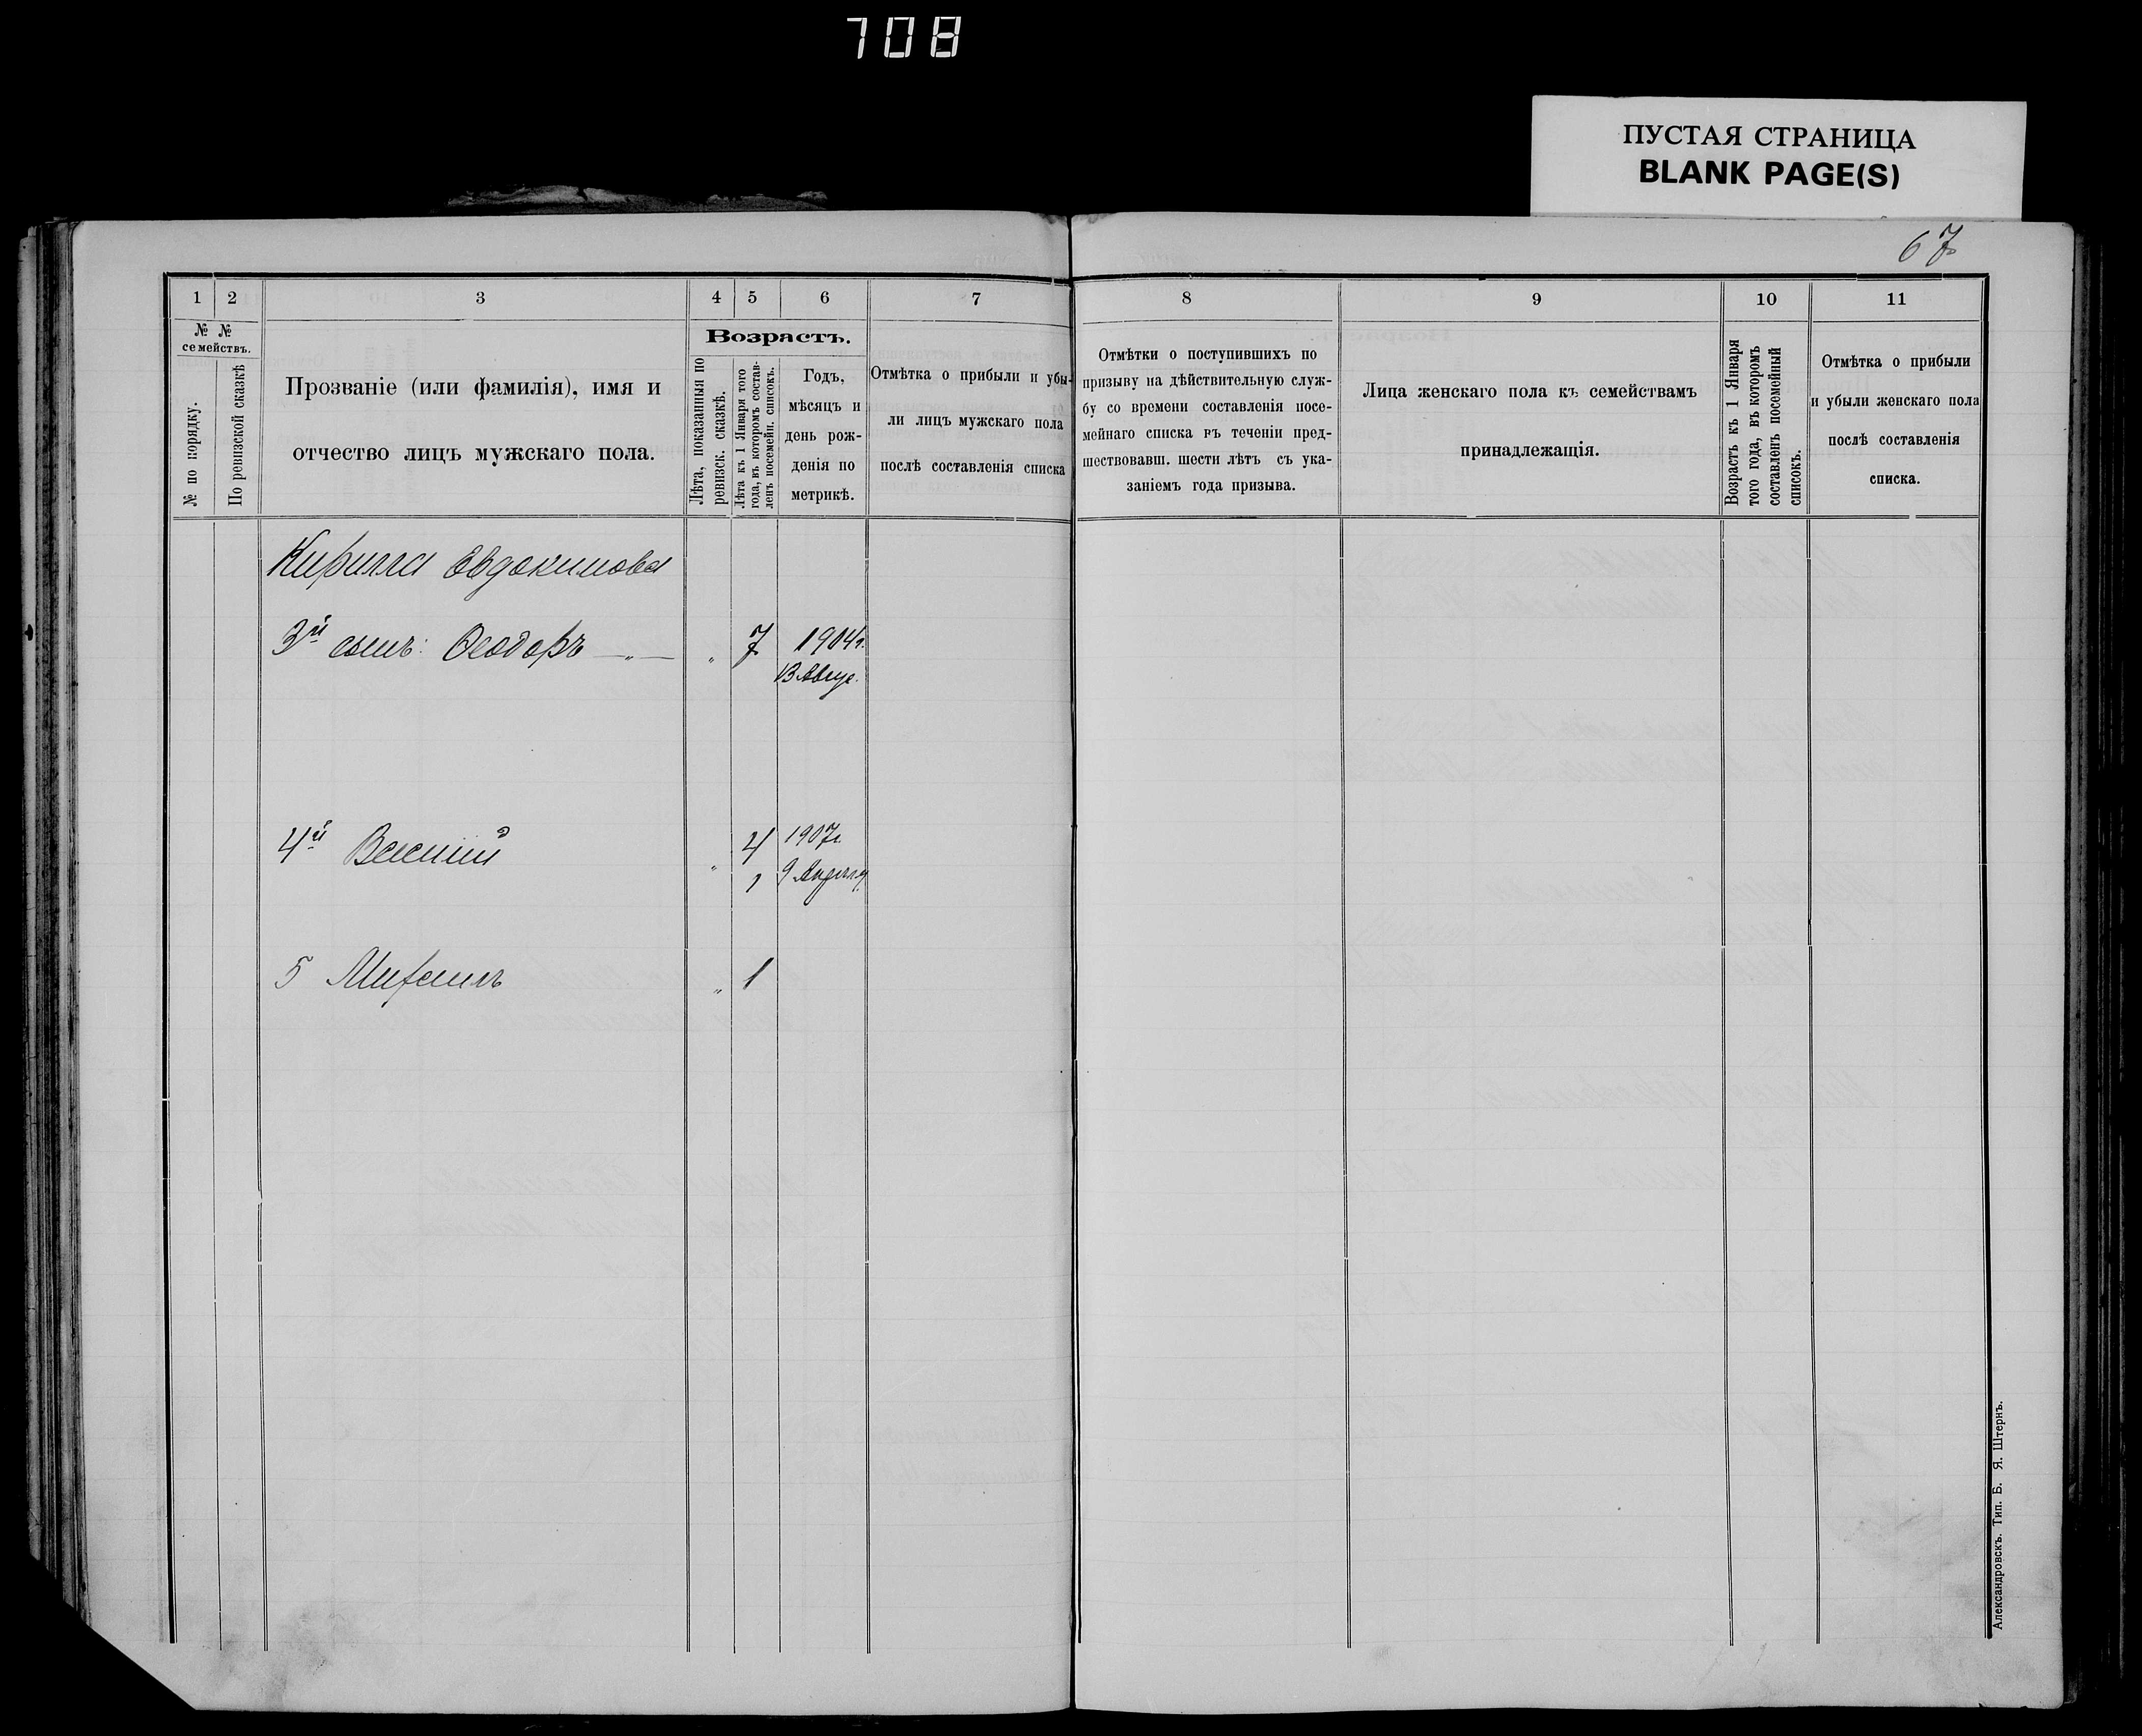 708
ПУСТАЯ СТРАНИЦА
BLANK PAGE(S)
67
1 2 3 4 5 6 7 8 9 10 11
№ № семействъ.
№ по порядку.
По ревизской сказкѣ
Прозваніе (или фамилія), имя и
отчество лицъ мужскаго пола.
Возрастъ.
Лѣта, показанныя по
ревизск. сказкѣ.
Лѣта къ 1 Января того
года, въ которомъ состав-
ленъ посемейн. списокъ.
Годъ,
мѣсяцъ и
день рож-
денія по
метрикѣ.
Отмѣтка о прибыли и убы-
ли лицъ мужскаго пола
послѣ составленія списка
Отмѣтки о поступившихъ по
призыву на дѣйствительную служ-
бу со времени составленія посе-
мейнаго списка въ теченіи пред-
шествовавш. шести лѣтъ съ ука-
заніемъ года призыва.
Лица женскаго пола къ семействамъ
принадлежащія.
Возрастъ къ 1 Января
того года, въ которомъ
составленъ посемейный
списокъ.
Отмѣтка о прибыли
и убыли женскаго пола
послѣ составленія
списка.
Кирилла Евдокимова
3й сынъ: Ѳеодоръ —"— " 7 1904г.
13 Авгус.
4й Василий " 4 1907г.
1 9 Апрѣля
5 Михаилъ " 1
Александровскъ. Тип. Б. Я. Штернъ.